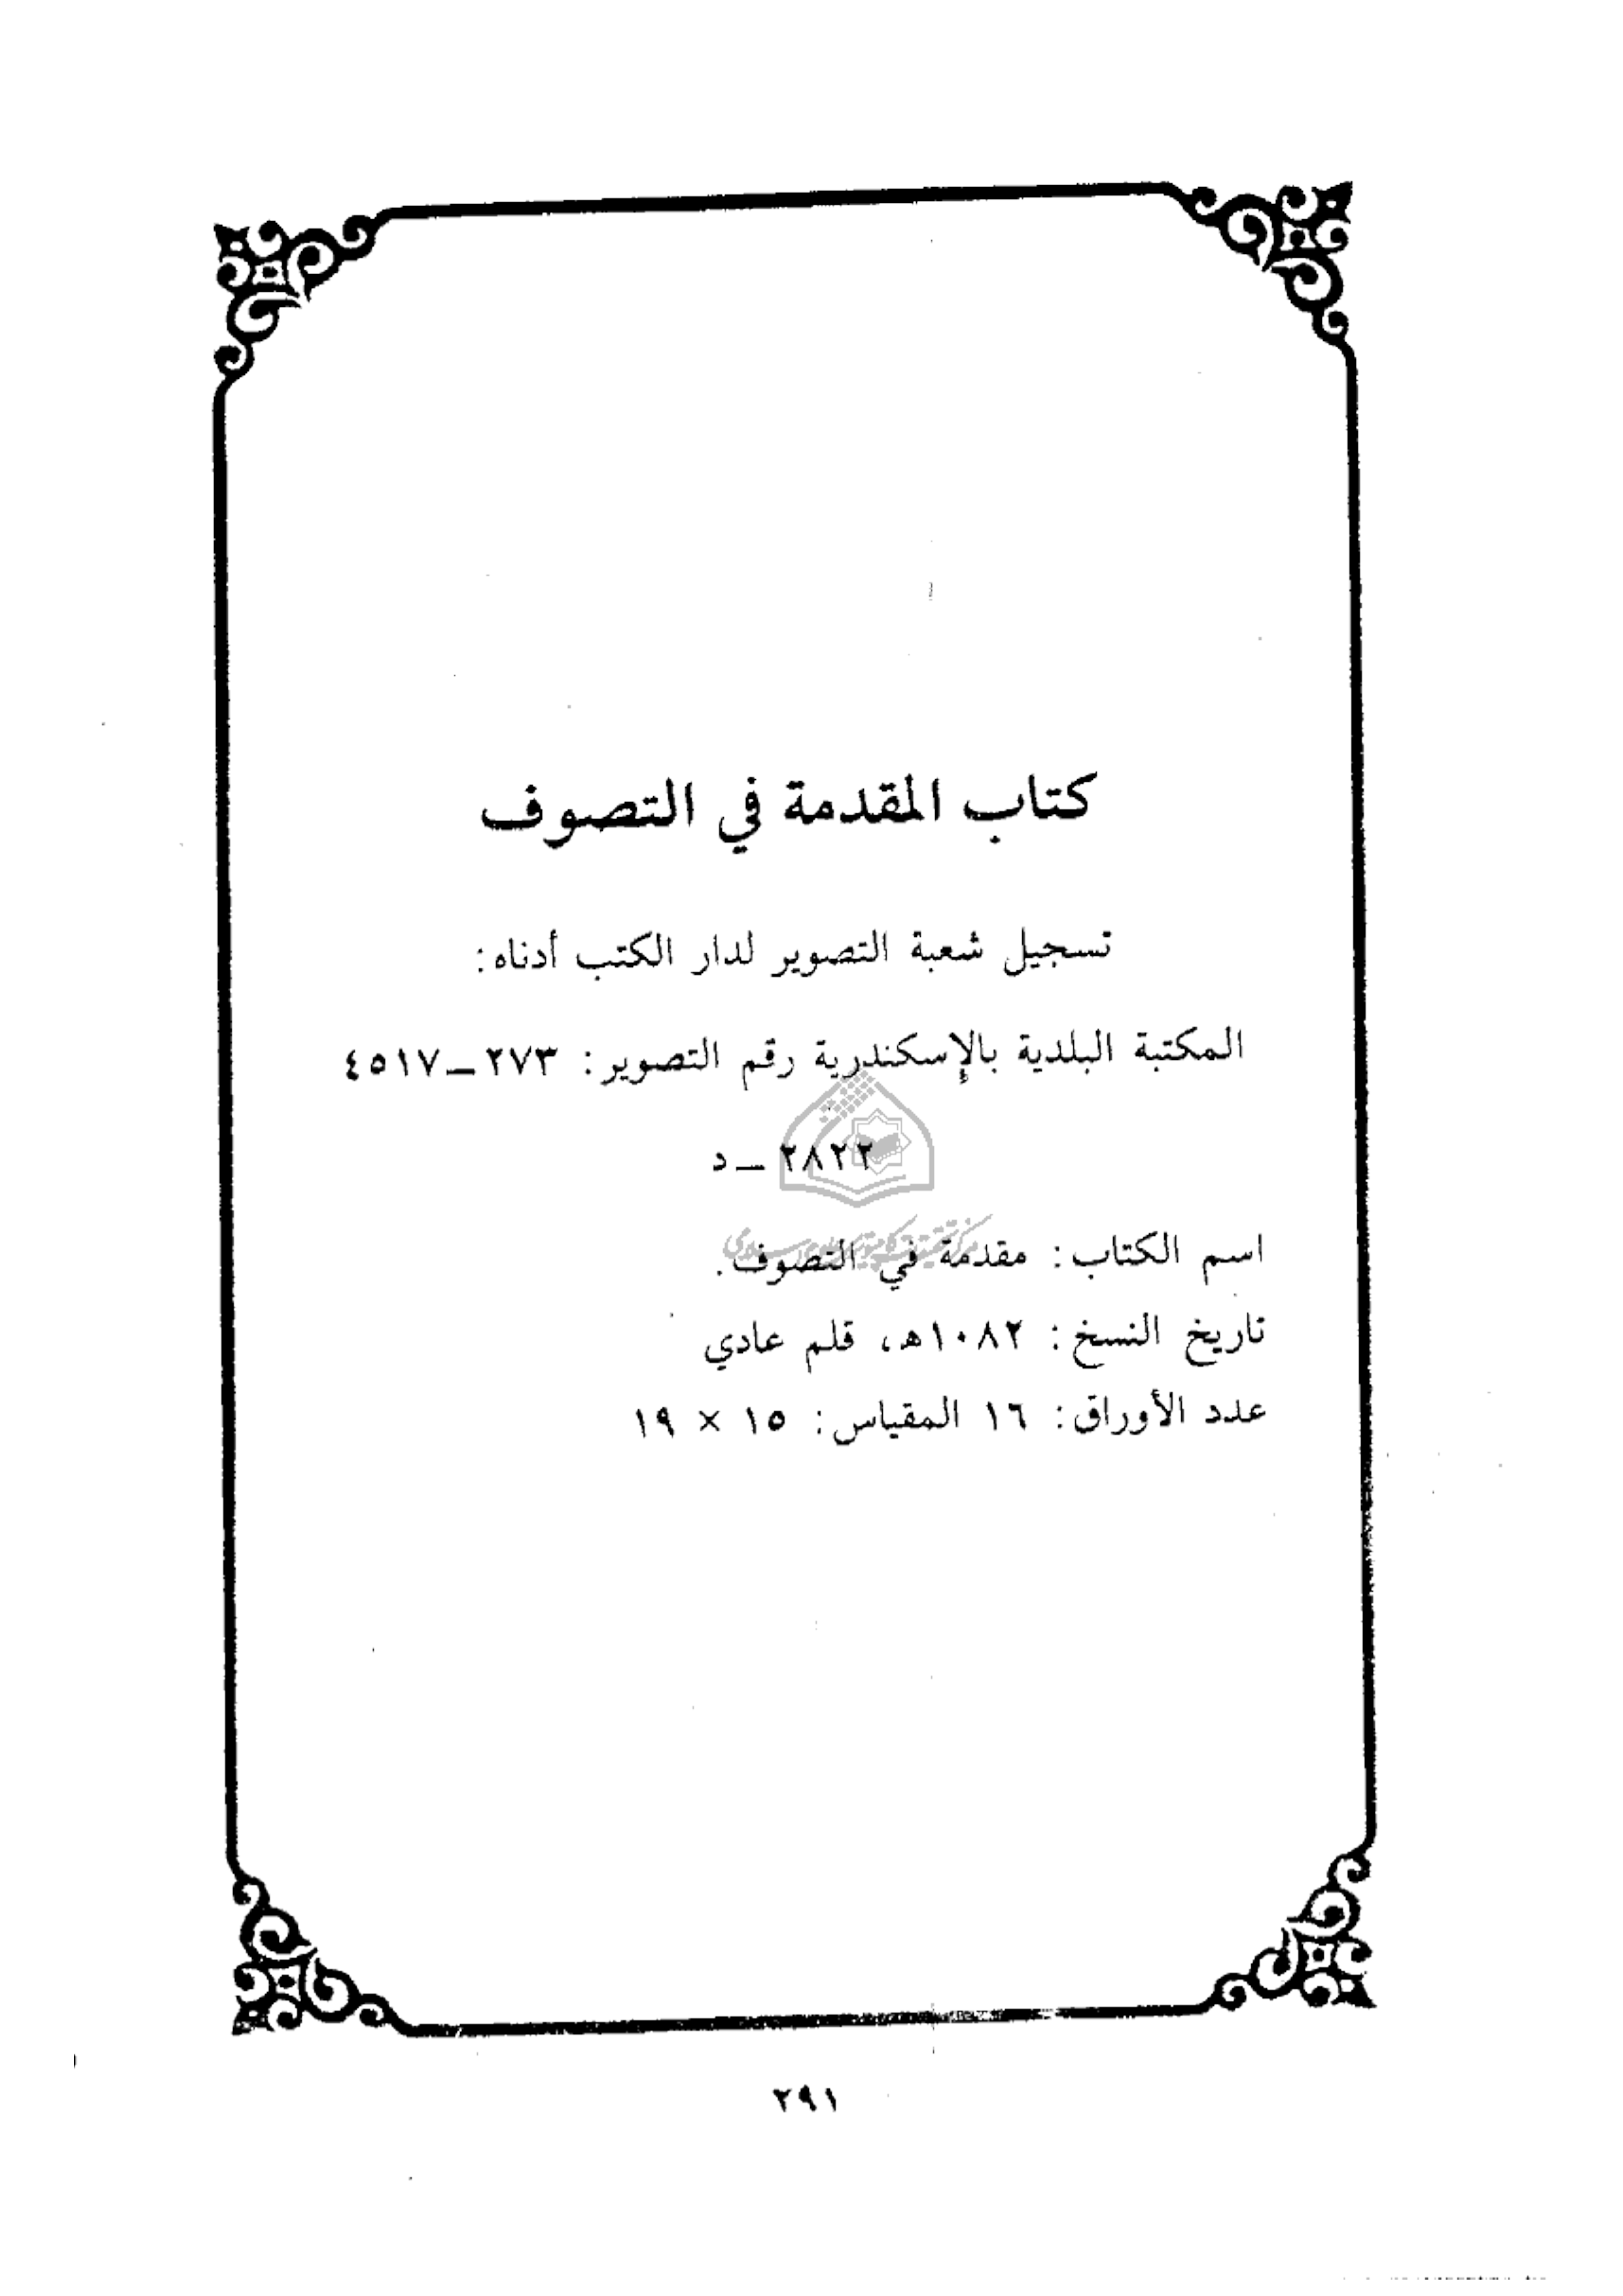 كتاب المقدمة في التصوف
تسجيل شعبة التصوير لدار الكتب أدناه:
المكتبة البلدية بالإسكندرية رقم التصوير: ٢٧٣ – ٤٥١٧
٢٨٢٢ – د
اسم الكتاب: مقدمة في التصوف.
تاريخ النسخ: ١٠٨٢هـ، قلم عادي
عدد الأوراق: ١٦ المقياس: ١٥ × ١٩
٢٩١